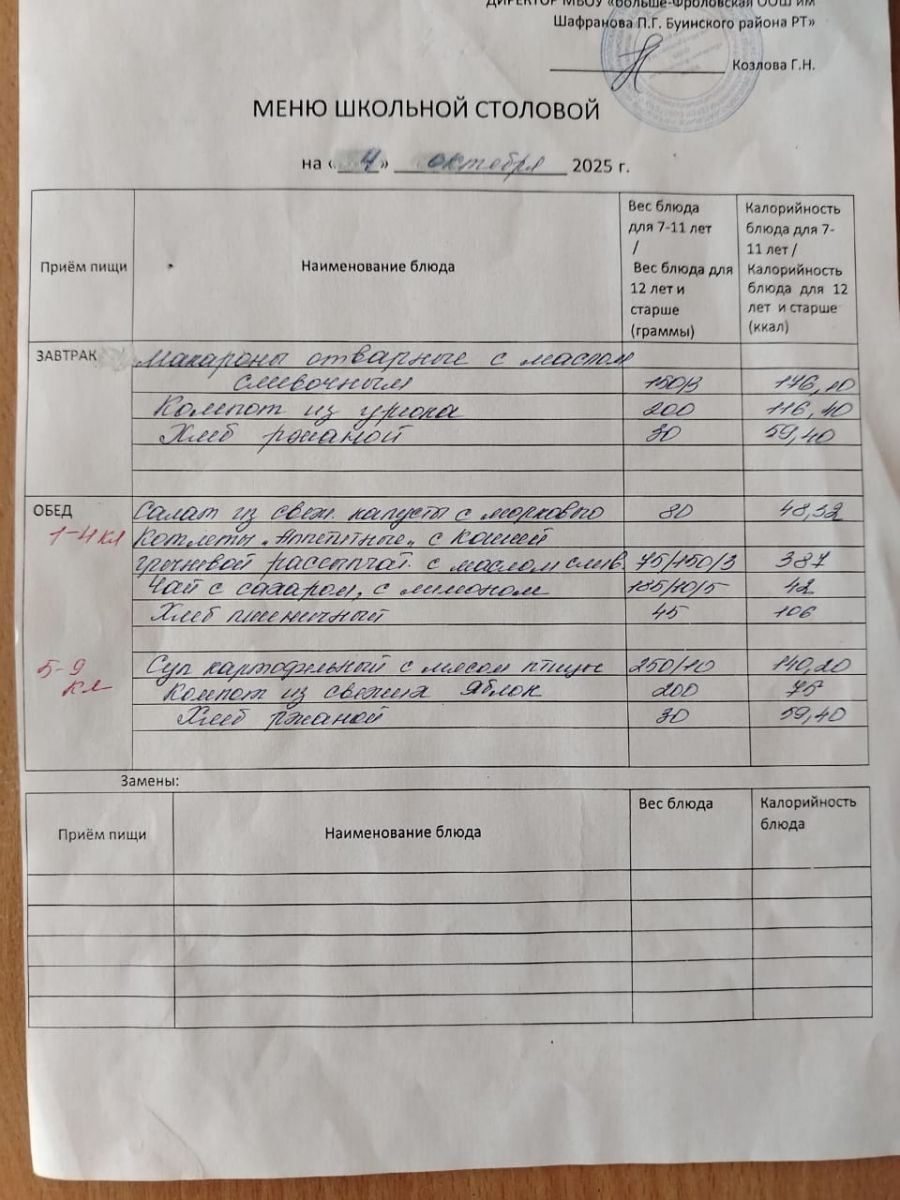 ДИРЕКТОР МБОУ «Больше-Фроловская ООШ им
Шафранова П.Г. Буинского района РТ»
Козлова Г.Н.
МЕНЮ ШКОЛЬНОЙ СТОЛОВОЙ
на «4» октября 2025 г.
Приём пищи Наименование блюда Вес блюда для 7-11 лет / Вес блюда для 12 лет и старше (граммы) Калорийность блюда для 7-11 лет / Калорийность блюда для 12 лет и старше (ккал)
ЗАВТРАК Макароны отварные с маслом
сливочным 150/3 176,10
Компот из урюка 200 116,40
Хлеб ржаной 30 59,40
ОБЕД Салат из свеж. капусты с морковью 80 48,32
1-4 кл Котлеты „Аппетитные" с кашей
гречневой рассыпчат. с маслом слив. 75/150/3 387
Чай с сахаром, с лимоном 185/10/5 42
Хлеб пшеничный 45 106
5-9 кл Суп картофельный с мясом птицы 250/10 140,20
Компот из свежих яблок 200 75
Хлеб ржаной 30 59,40
Замены:
Приём пищи Наименование блюда Вес блюда Калорийность блюда